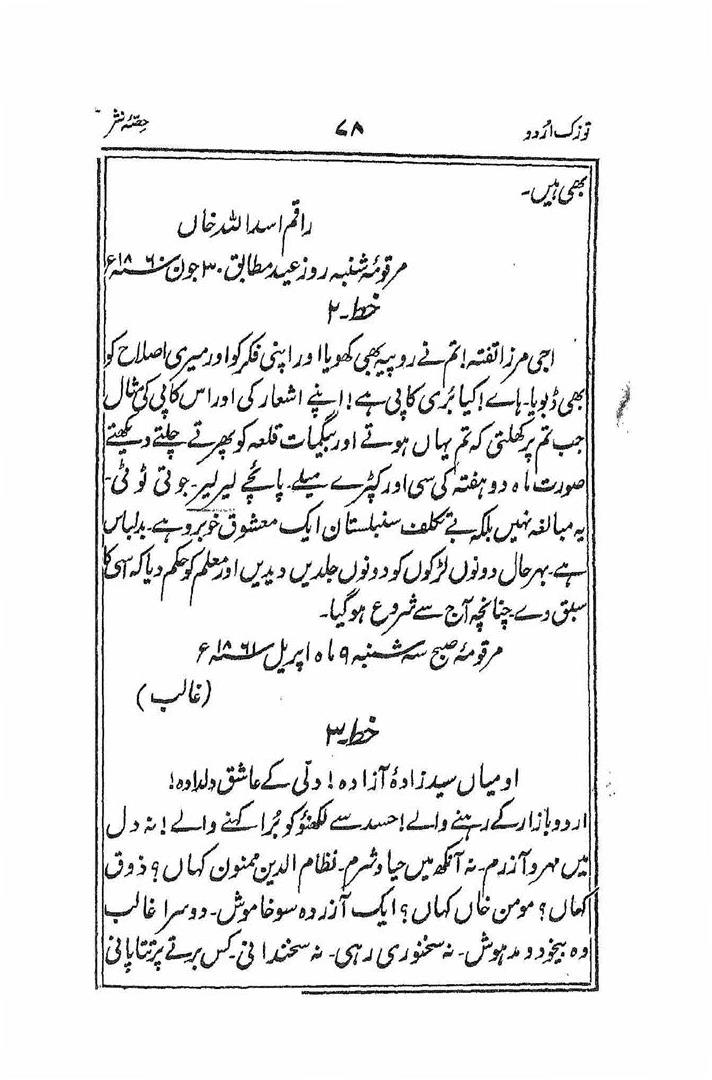 توزک اُردو ۷۸ حصّۂ نثر
بھی ہیں۔
راقم اسد اللہ خاں
مرقومۂ شنبہ روز عید مطابق ۳۰ جون سنہ ۱۸۶۰ء
خط۔۲
اجی مرزا تفتہ! تم نے روپیہ بھی کھویا اور اپنی فکر کو اور میری اصلاح کو
بھی ڈبویا۔ ہاے! کیا بُری کاپی ہے! اپنے اشعار کی اور اس کاپی کی مثال
جب تم پر کھلتی کہ تم یہاں ہوتے اور بیگمات قلعہ کو پھرتے چلتے دیکھتے
صورت ماہ دو ہفتہ کی سی اور کپڑے میلے۔ پائچے لیر لیر۔ جوتی ٹوٹی۔
یہ مبالغہ نہیں بلکہ بے تکلف سنبلستان ایک معشوق خوبرو ہے۔ بدلباس
ہے۔ بہر حال دونوں لڑکوں کو دونوں جلدیں دیدیں اور معلم کو حکم دیا کہ اسی کا
سبق دے چنانچہ آج سے شروع ہو گیا۔
مرقومۂ صبح سہ شنبہ ۹ ماہ اپریل سنہ ۱۸۶۱ء
(غالب)
خط۔۳
او میاں سید زادۂ آزادہ! دلّی کے عاشق دلدادہ!
اردو بازار کے رہنے والے! حسد سے لکھنؤ کو بُرا کہنے والے! نہ دل
میں مہر و آزرم۔ نہ آنکھ میں حیا و شرم۔ نظام الدین ممنون کہاں؟ ذوق
کہاں؟ مومن خاں کہاں؟ ایک آزردہ سو خاموش۔ دوسرا غالب
وہ بیخود و مدہوش۔ نہ سخنوری رہی۔ نہ سخندانی۔ کس برتے پر تتا پانی